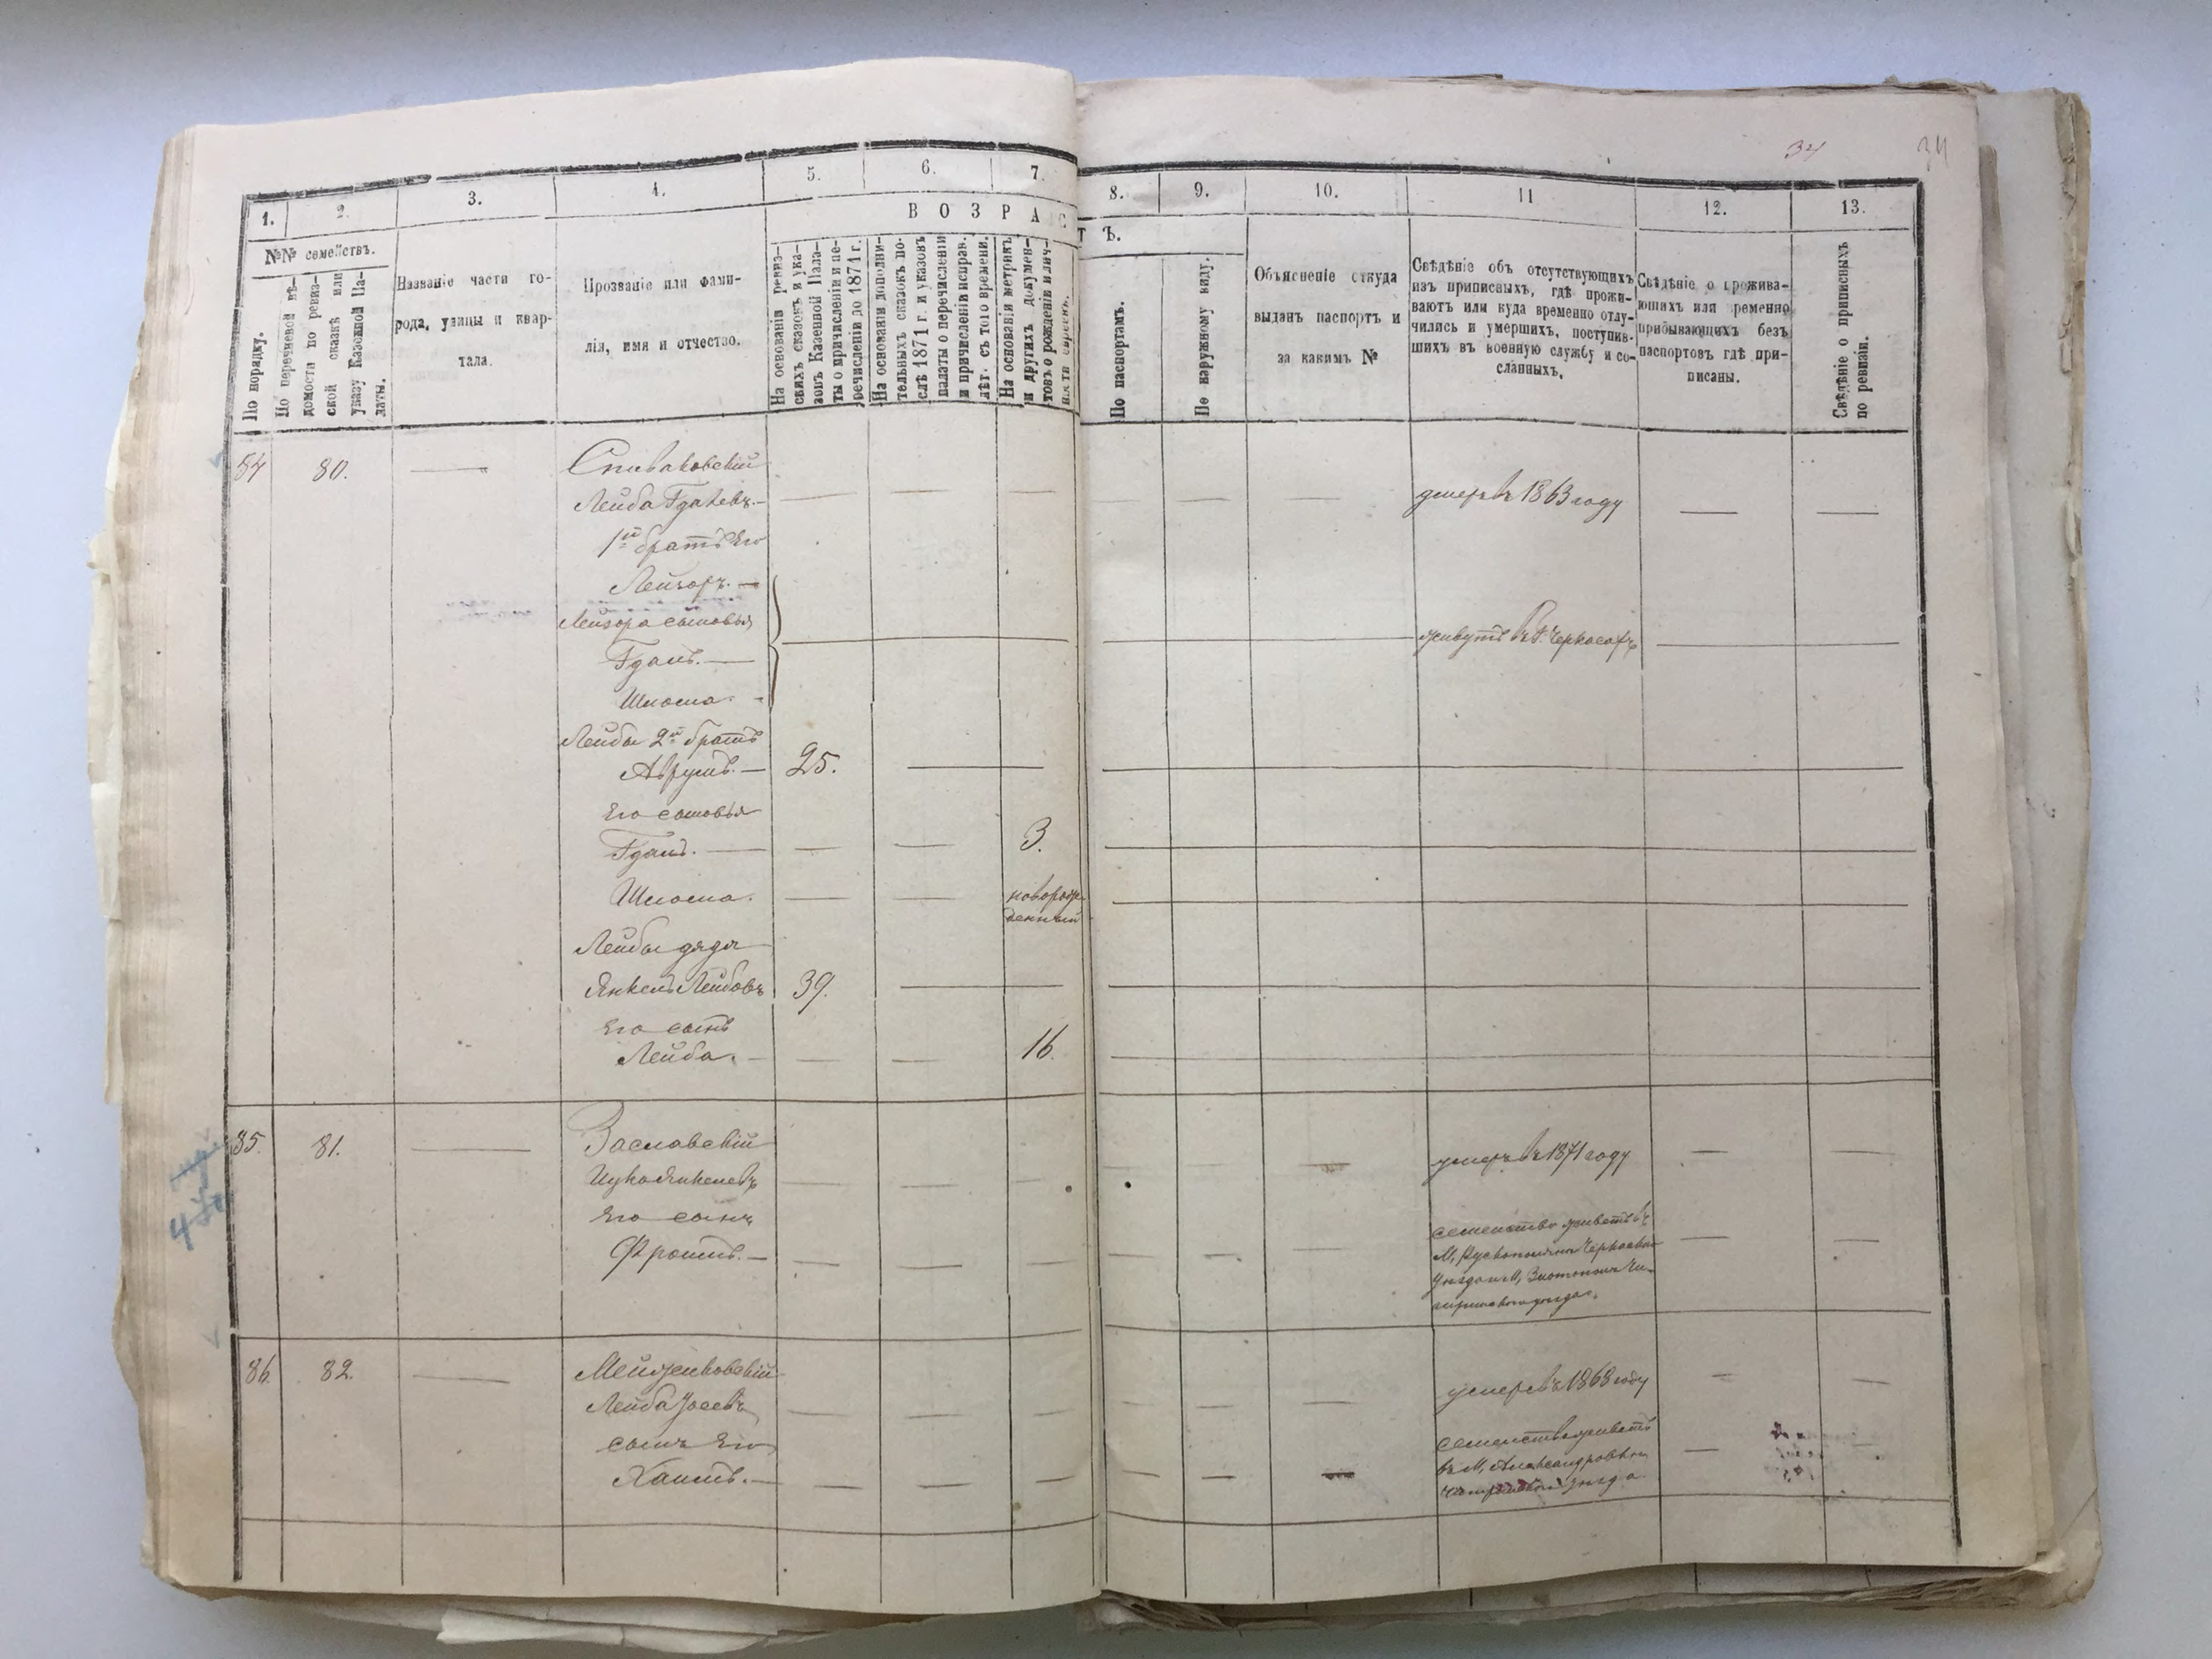 34
34
1.
2.
3.
4.
5.
6.
7.
8.
9.
10.
11
12.
13.
ВОЗРАС
ТЪ.
№№ семействъ.
По порядку.
По перечневой вѣ-
домости по ревиз-
ской сказкѣ или
указу Казенной Па-
латы.
Названіе части го-
рода, улицы и квар-
тала.
Прозваніе или фами-
лія, имя и отчество.
На основаніи ревиз-
скихъ сказокъ и ука-
зовъ Казенной Пала-
ты о причисленіи и пе-
речисленіи до 1871 г.
На основаніи дополни-
тельныхъ сказокъ по-
слѣ 1871 г. и указовъ
палаты о перечисленіи
и причисленіи исправ.
лѣт. съ того времени.
На основаніи метрикъ
и другихъ докумен-
товъ о рожденіи и лич-
По паспортамъ.
По наружному виду.
Объясненіе откуда
выданъ паспортъ и
за какимъ №
Свѣдѣніе объ отсутствующихъ
изъ приписныхъ, гдѣ прожи-
ваютъ или куда временно отлу-
чились и умершихъ, поступив-
шихъ въ военную службу и со-
сланныхъ.
Свѣдѣніе о прожива-
ющихъ или временно
прибывающихъ безъ
паспортовъ гдѣ при-
писаны.
Свѣдѣніе о приписныхъ
по ревизіи.
84 80. Спиваковскій
Лейба Гдалевъ. умеръ въ 1863 году
1й братъ его
Лейзоръ.
Лейзора сыновья
Гдаль. живутъ въ г. Черкасахъ
Шлома.
Лейбы 2й братъ
Аврумъ. 25.
Его сыновья
Гдаль. 3.
Шлома. новорож-
денный
Лейбы дядя
Янкель Лейбовъ 39.
Его сынъ
Лейба. 16.
85. 81. Заславскій умеръ въ 1871 году
Ицко Янкелевъ
Его сынъ
Фроимъ.
семейство живетъ въ
М, Русскополянѣ Черкаскаго
уѣзда и М, Златополѣ Чи-
гиринскаго уѣзда.
86. 82. Мейженковскій умеръ въ 1868 году
Лейба Іосевъ
сынъ его
Хаимъ.
семейство живетъ
въ М, Александровкѣ
Чигиринскаго уѣзда